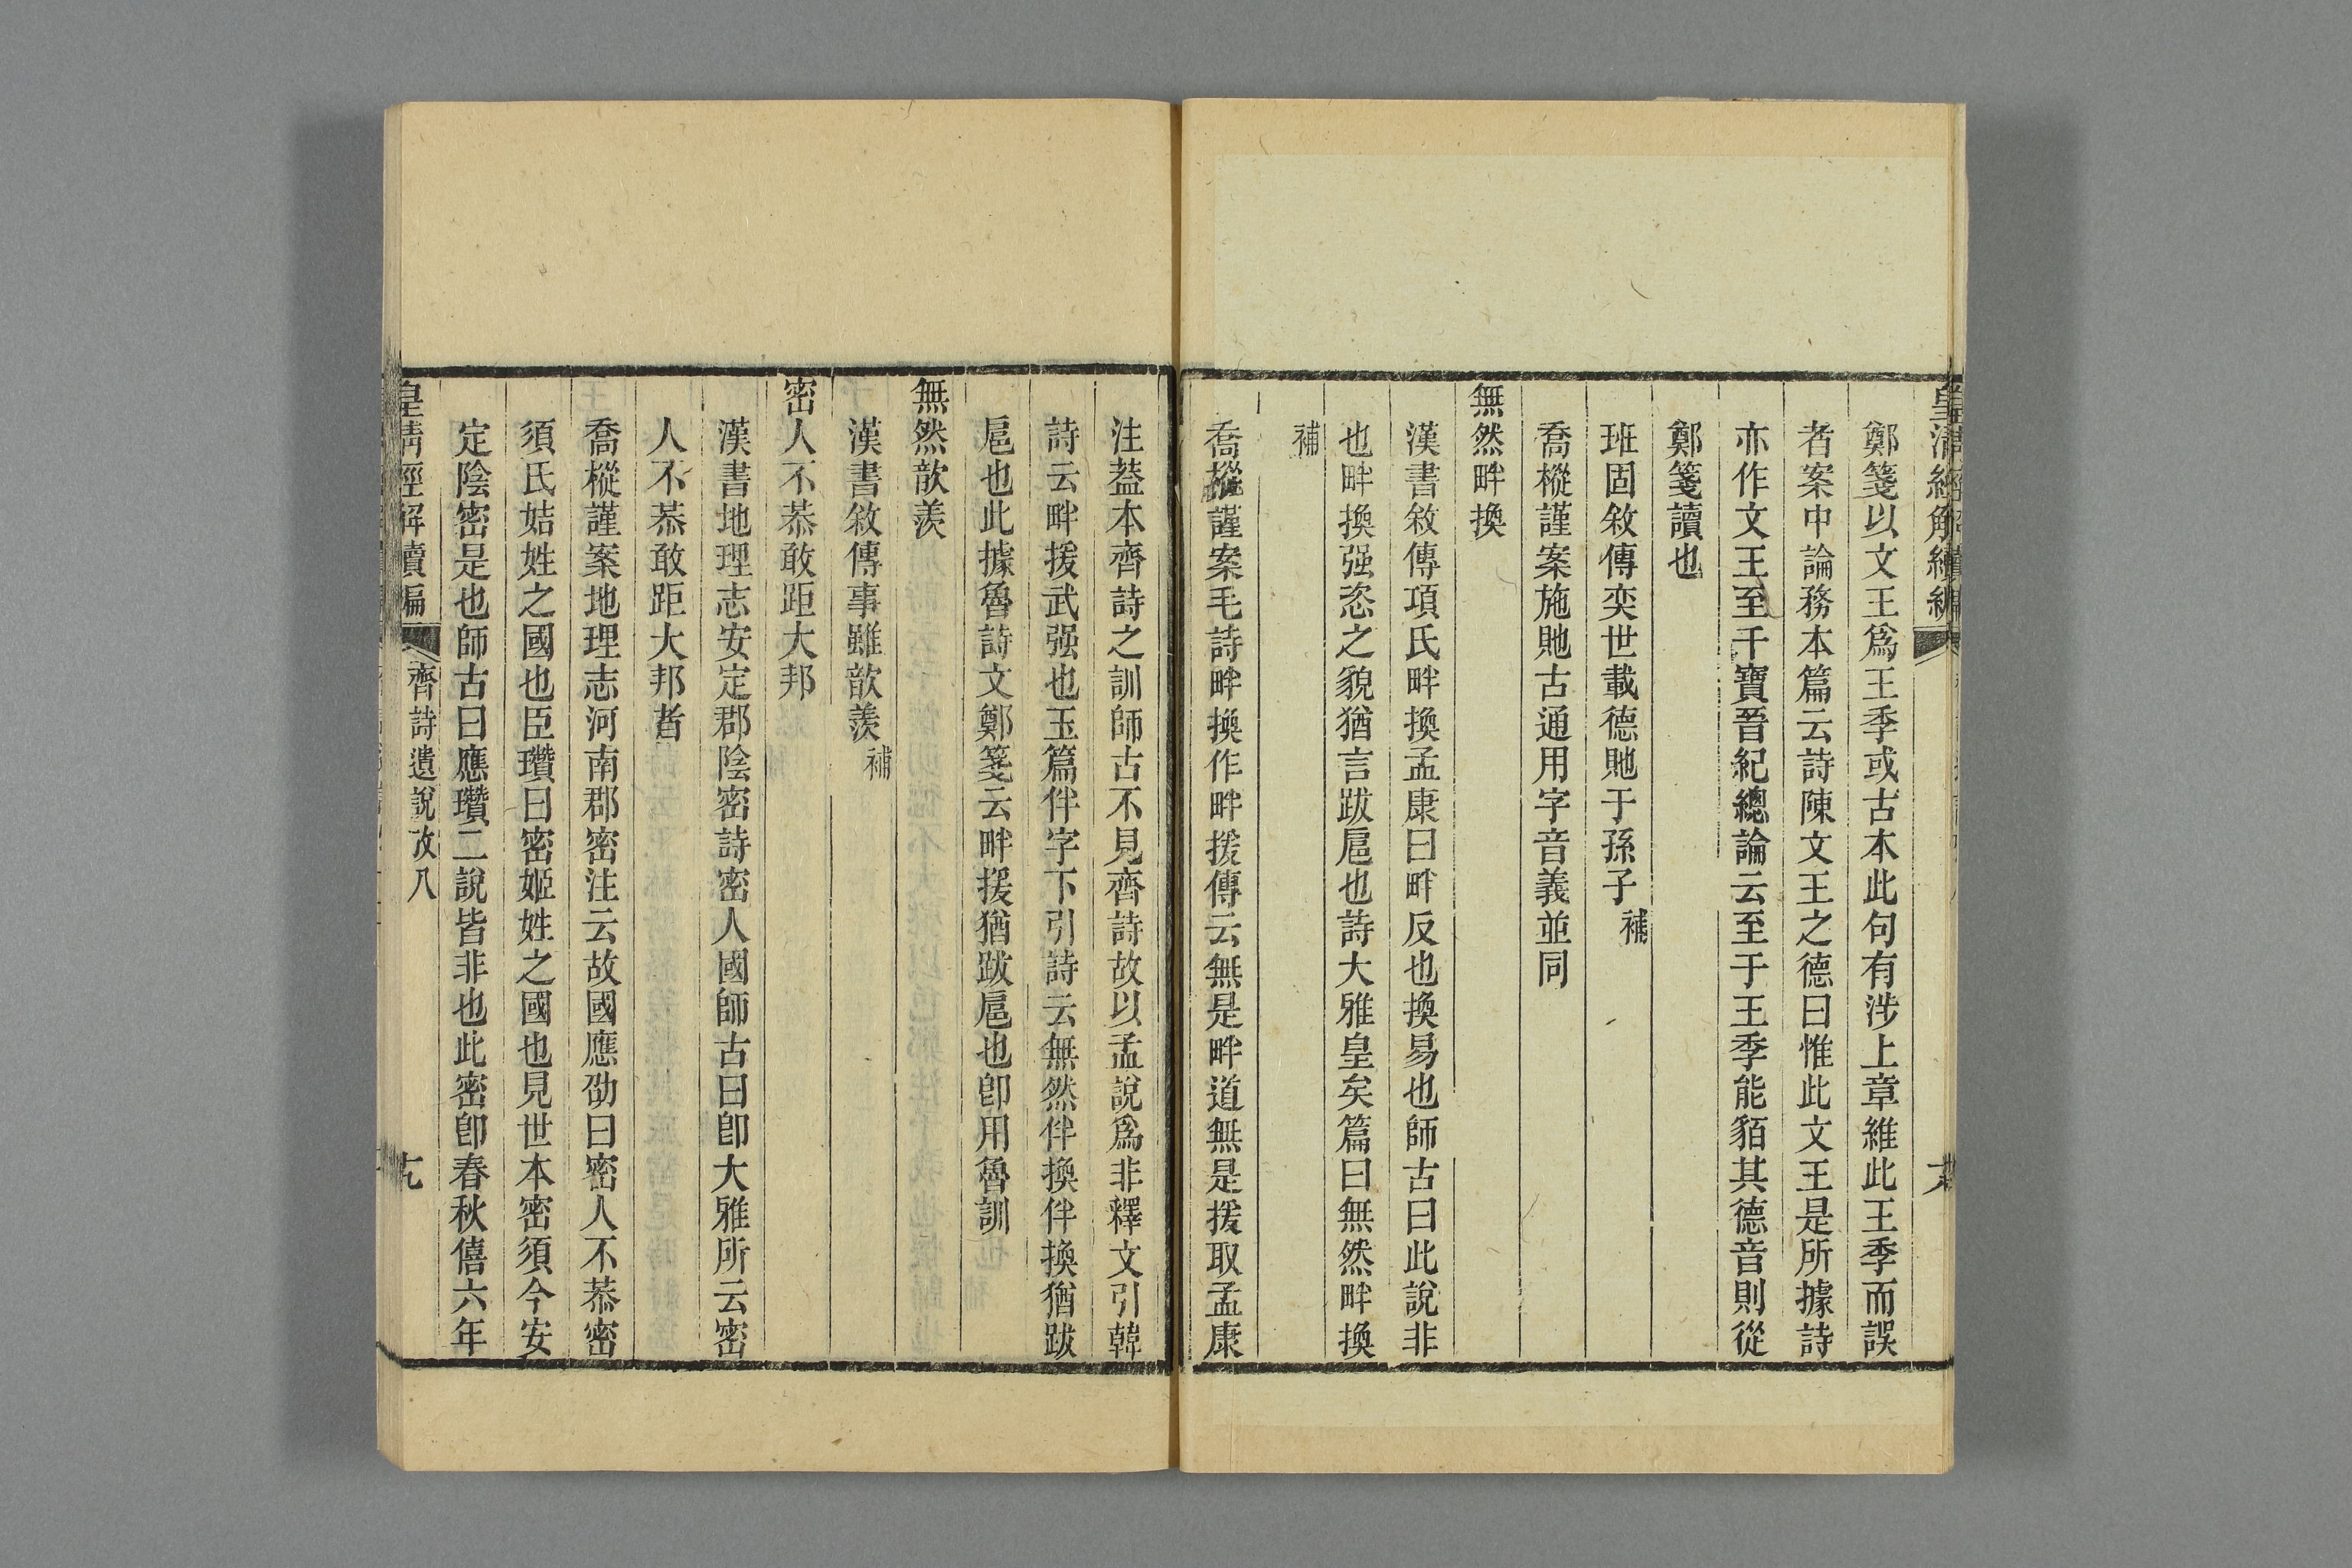 皇清經解續編
鄭箋以文王爲王季或古本此句有涉上章維此王季而誤
者案中論務本篇云詩陳文王之德曰惟此文王是所據詩
亦作文王至干寶晉紀總論云至于王季能貊其德音則從
鄭箋讀也
班固敘傳奕世載德貤于孫子補
喬樅謹案施貤古通用字音義並同
無然畔換
漢書敘傳項氏畔換孟康曰畔反也換易也師古曰此說非
也畔換强恣之貌猶言跋扈也詩大雅皇矣篇曰無然畔換
補
喬樅謹案毛詩畔換作畔援傳云無是畔道無是援取孟康
注葢本齊詩之訓師古不見齊詩故以孟說爲非釋文引韓
詩云畔援武强也玉篇伴字下引詩云無然伴換伴換猶跋
扈也此據魯詩文鄭箋云畔援猶跋扈也卽用魯訓
無然歆羨
漢書敘傳事雖歆羨補
密人不恭敢距大邦
漢書地理志安定郡陰密詩密人國師古曰卽大雅所云密
人不恭敢距大邦者
喬樅謹案地理志河南郡密注云故國應劭曰密人不恭密
須氏姞姓之國也臣瓚曰密姬姓之國也見世本密須今安
定陰密是也師古曰應瓚二說皆非也此密卽春秋僖六年
皇清經解續編 齊詩遺說攷八